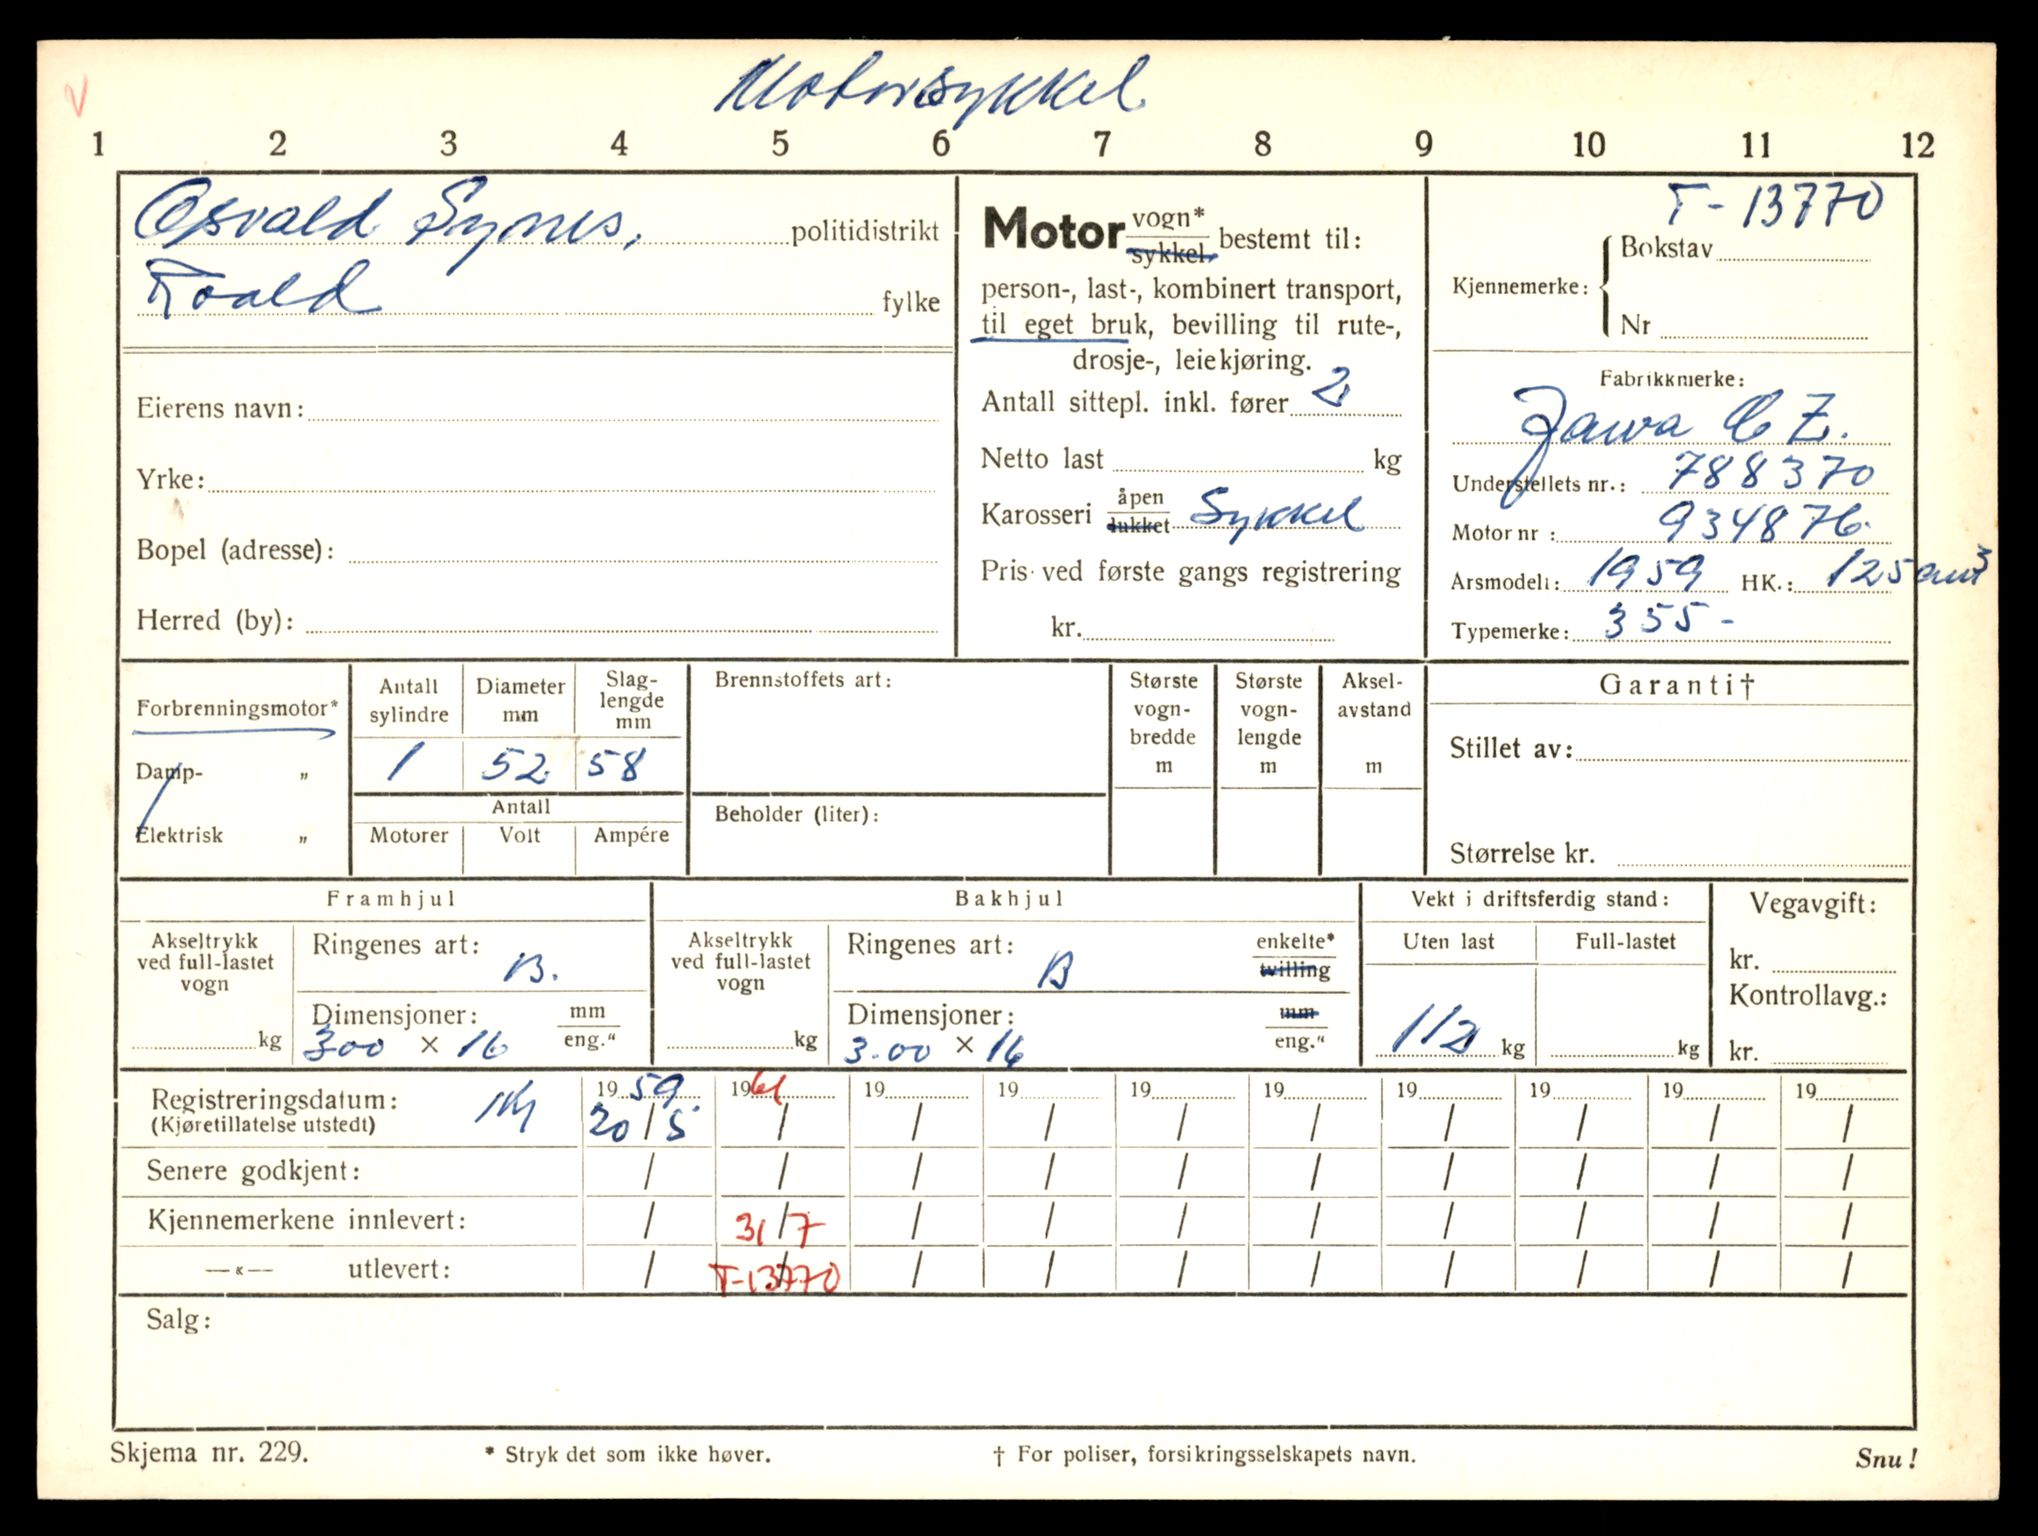 Motorsykkel
1 2 3 4 5 6 7 8 9 10 11 12
Osvald Synes, politidistrikt
Roald fylke
Eierens navn:
Yrke:
Bopel (adresse):
Herred (by):
Motor vogn* sykkel bestemt til:
person-, last-, kombinert transport,
til eget bruk, bevilling til rute-,
drosje-, leiekjøring.
Antall sittepl. inkl. fører 2
Netto last kg
Karosseri åpen lukket Sykkel
Pris ved første gangs registrering
kr.
T-13770
Kjennemerke: Bokstav
Nr
Fabrikkmerke:
Jawa CZ.
Understellets nr.: 788370
Motor nr : 934876
Årsmodell: 1959 HK.: 125 cm³
Typemerke: 355-
Forbrenningsmotor*
Damp- „
Elektrisk „
Antall sylindre Diameter mm Slag-lengde mm
1 52 58
Antall
Motorer Volt Ampére
Brennstoffets art:
Beholder (liter):
Største vogn-bredde m
Største vogn-lengde m
Aksel-avstand m
Garanti†
Stillet av:
Størrelse kr.
Framhjul
Akseltrykk ved full-lastet vogn
kg
Ringenes art: B.
Dimensjoner: mm eng."
300 × 16
Bakhjul
Akseltrykk ved full-lastet vogn
kg
Ringenes art: B enkelte* tvilling
Dimensjoner: mm eng."
3.00 × 16
Vekt i driftsferdig stand:
Uten last Full-lastet
112 kg kg
Vegavgift:
kr.
Kontrollavg.:
kr.
Registreringsdatum: 19 59 19 61 19 19 19 19 19 19 19 19
(Kjøretillatelse utstedt) 20/5 / / / / / / / / /
Senere godkjent: / / / / / / / / / /
Kjennemerkene innlevert: / 31/7 / / / / / / / /
—«— utlevert: / T-13770 / / / / / / / /
Salg:
Skjema nr. 229. * Stryk det som ikke høver. † For poliser, forsikringsselskapets navn. Snu!